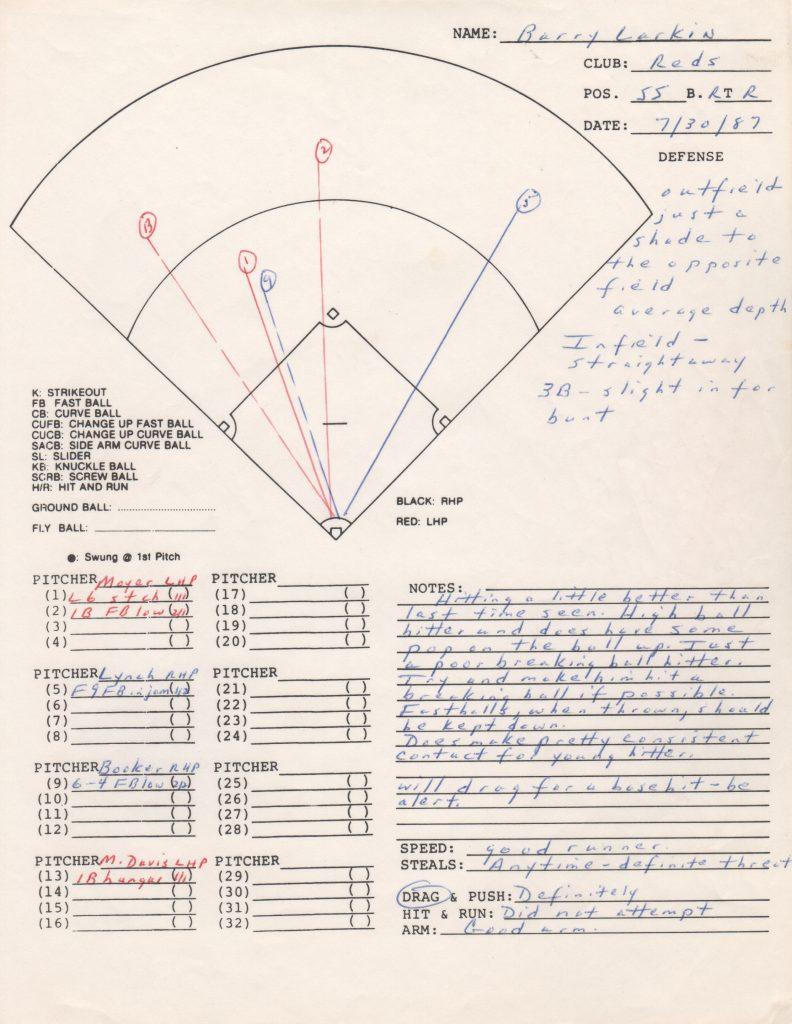 NAME: Barry Larkin
CLUB: Reds
POS. SS B. R T R
DATE: 7/30/87
DEFENSE
outfield
just a
shade to
the opposite
field
average depth
Infield -
straightaway
3B - slight in for
bunt
2
B
1
9
5
K: STRIKEOUT
FB FAST BALL
CB: CURVE BALL
CUFB: CHANGE UP FAST BALL
CUCB: CHANGE UP CURVE BALL
SACB: SIDE ARM CURVE BALL
SL: SLIDER
KB: KNUCKLE BALL
SCRB: SCREW BALL
H/R: HIT AND RUN
GROUND BALL:
FLY BALL:
BLACK: RHP
RED: LHP
●: Swung @ 1st Pitch
PITCHER Moyer LHP
(1) L6 ( )
(2) 1B FB low (2/1)
(3) ( )
(4) ( )
PITCHER Lynch RHP
(5) F9 FB in jam ( )
(6) ( )
(7) ( )
(8) ( )
PITCHER Booker RHP
(9) 6-4 FB low ( )
(10) ( )
(11) ( )
(12) ( )
PITCHER M. Davis LHP
(13) 1B hanger (1/1)
(14) ( )
(15) ( )
(16) ( )
PITCHER
(17) ( )
(18) ( )
(19) ( )
(20) ( )
PITCHER
(21) ( )
(22) ( )
(23) ( )
(24) ( )
PITCHER
(25) ( )
(26) ( )
(27) ( )
(28) ( )
PITCHER
(29) ( )
(30) ( )
(31) ( )
(32) ( )
NOTES:
Hitting a little better than
last time seen. High ball
hitter and does have some
pop on the ball up. Just
a poor breaking ball hitter.
Try and make him hit a
breaking ball if possible.
Fastballs, when thrown, should
be kept down.
Does make pretty consistent
contact for young hitter.
will drag for a base hit - be
alert.
SPEED: good runner.
STEALS: Anytime - definite threat
DRAG & PUSH: Definitely
HIT & RUN: Did not attempt
ARM: Good arm.